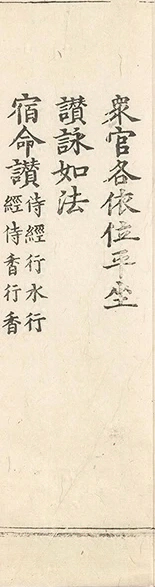 衆官各依位平坐
讃詠如法
宿命讃侍經行水行
經侍香行香